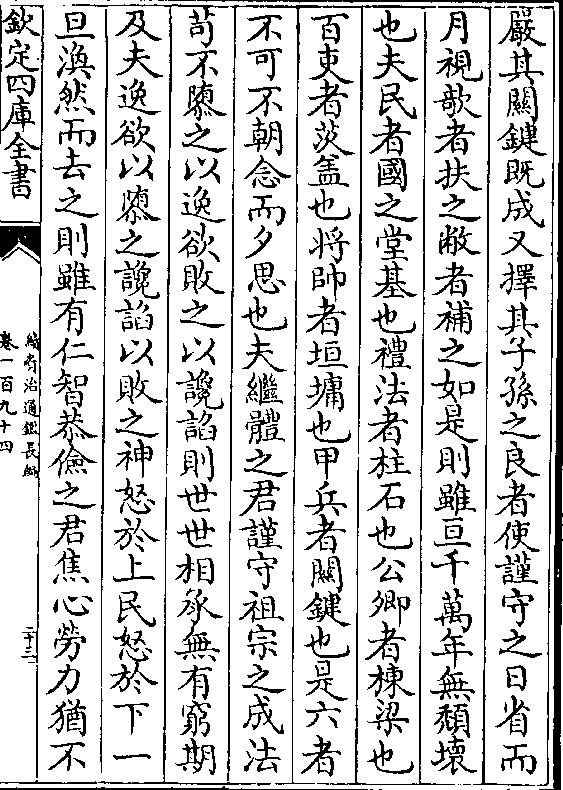 嚴其關鍵既成又擇其子孫之良者使謹守之日省而
月視欹者扶之敝者補之如是則雖亘千萬年無頽壊
也夫民者國之堂基也禮法者柱石也公卿者棟梁也
百吏者茨盖也將帥者垣墉也甲兵者關鍵也是六者
不可不朝念而夕思也夫繼體之君謹守祖宗之成法
苟不隳之以逸欲敗之以讒諂則世世相承無有窮期
及夫逸欲以隳之讒諂以敗之神怒於上民怒於下一
旦渙然而去之則雖有仁智恭儉之君焦心勞力猶不
欽定四庫全書
續資治通鑑長編
卷一百九十四
二十三